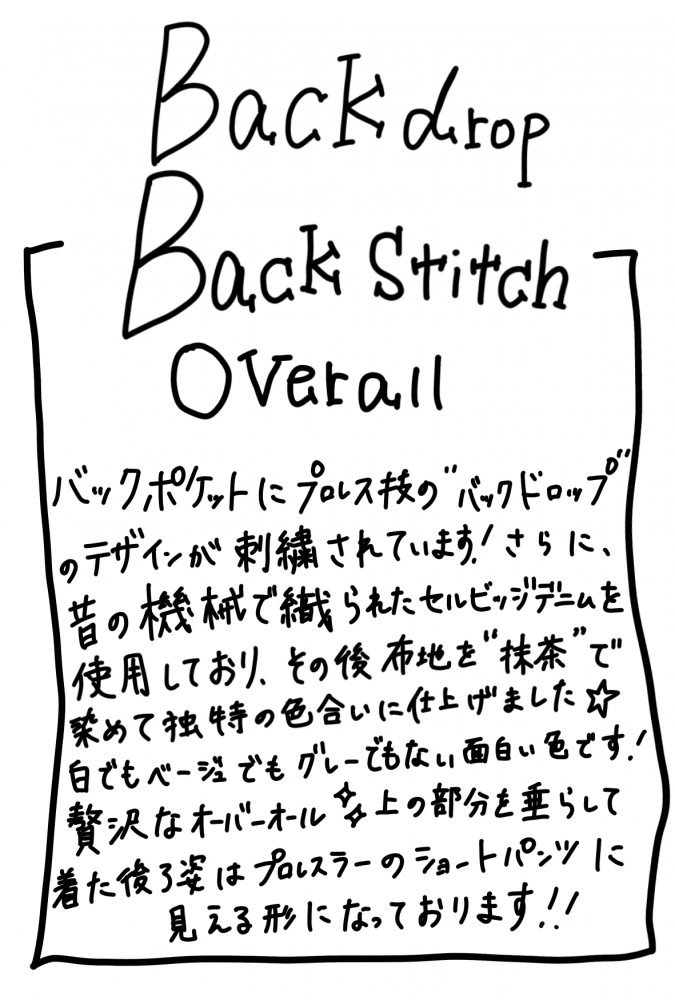 Backdrop
Back Stitch
Overall
バックポケットにプロレス技の"バックドロップ"
のデザインが刺繍されています!さらに、
昔の機械で織られたセルビッジデニムを
使用しており、その後布地を"抹茶"で
染めて独特の色合いに仕上げました☆
白でもベージュでもグレーでもない面白い色です!
贅沢なオーバーオール✨上の部分を垂らして
着た後ろ姿はプロレスラーのショートパンツに
見える形になっております!!